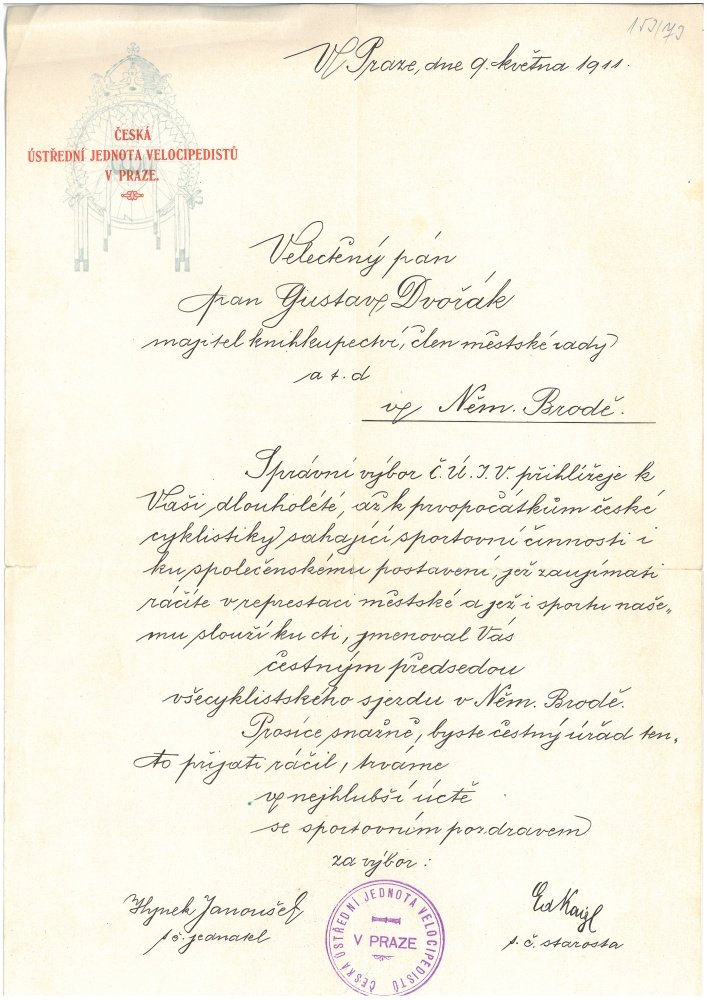 153/73
V Praze, dne 9. května 1911.
ČESKÁ
ÚSTŘEDNÍ JEDNOTA VELOCIPEDISTŮ
V PRAZE.
Velectěný pán
pan Gustav Dvořák
majitel knihkupectví, člen městské rady
a t. d
v Něm. Brodě.
Správní výbor Č. Ú. J. V. přihlížeje k
Vaši dlouholété, až k prvopočátkům české
cyklistiky sahající sportovní činnosti i
ku společenskému postavení, jež zaujímati
ráčíte v represtaci městské a jež i sportu naše-
mu slouží ku cti, jmenoval Vás
čestným předsedou
všecyklistského sjezdu v Něm. Brodě.
Prosíce snažně, byste čestný úřad ten-
to přijati ráčil, trváme
v nejhlubší úctě
se sportovním pozdravem
za výbor:
Hynek Janoušek
t. č. jednatel
ČESKÁ ÚSTŘEDNÍ JEDNOTA VELOCIPEDISTŮ
V PRAZE
t. č. starosta